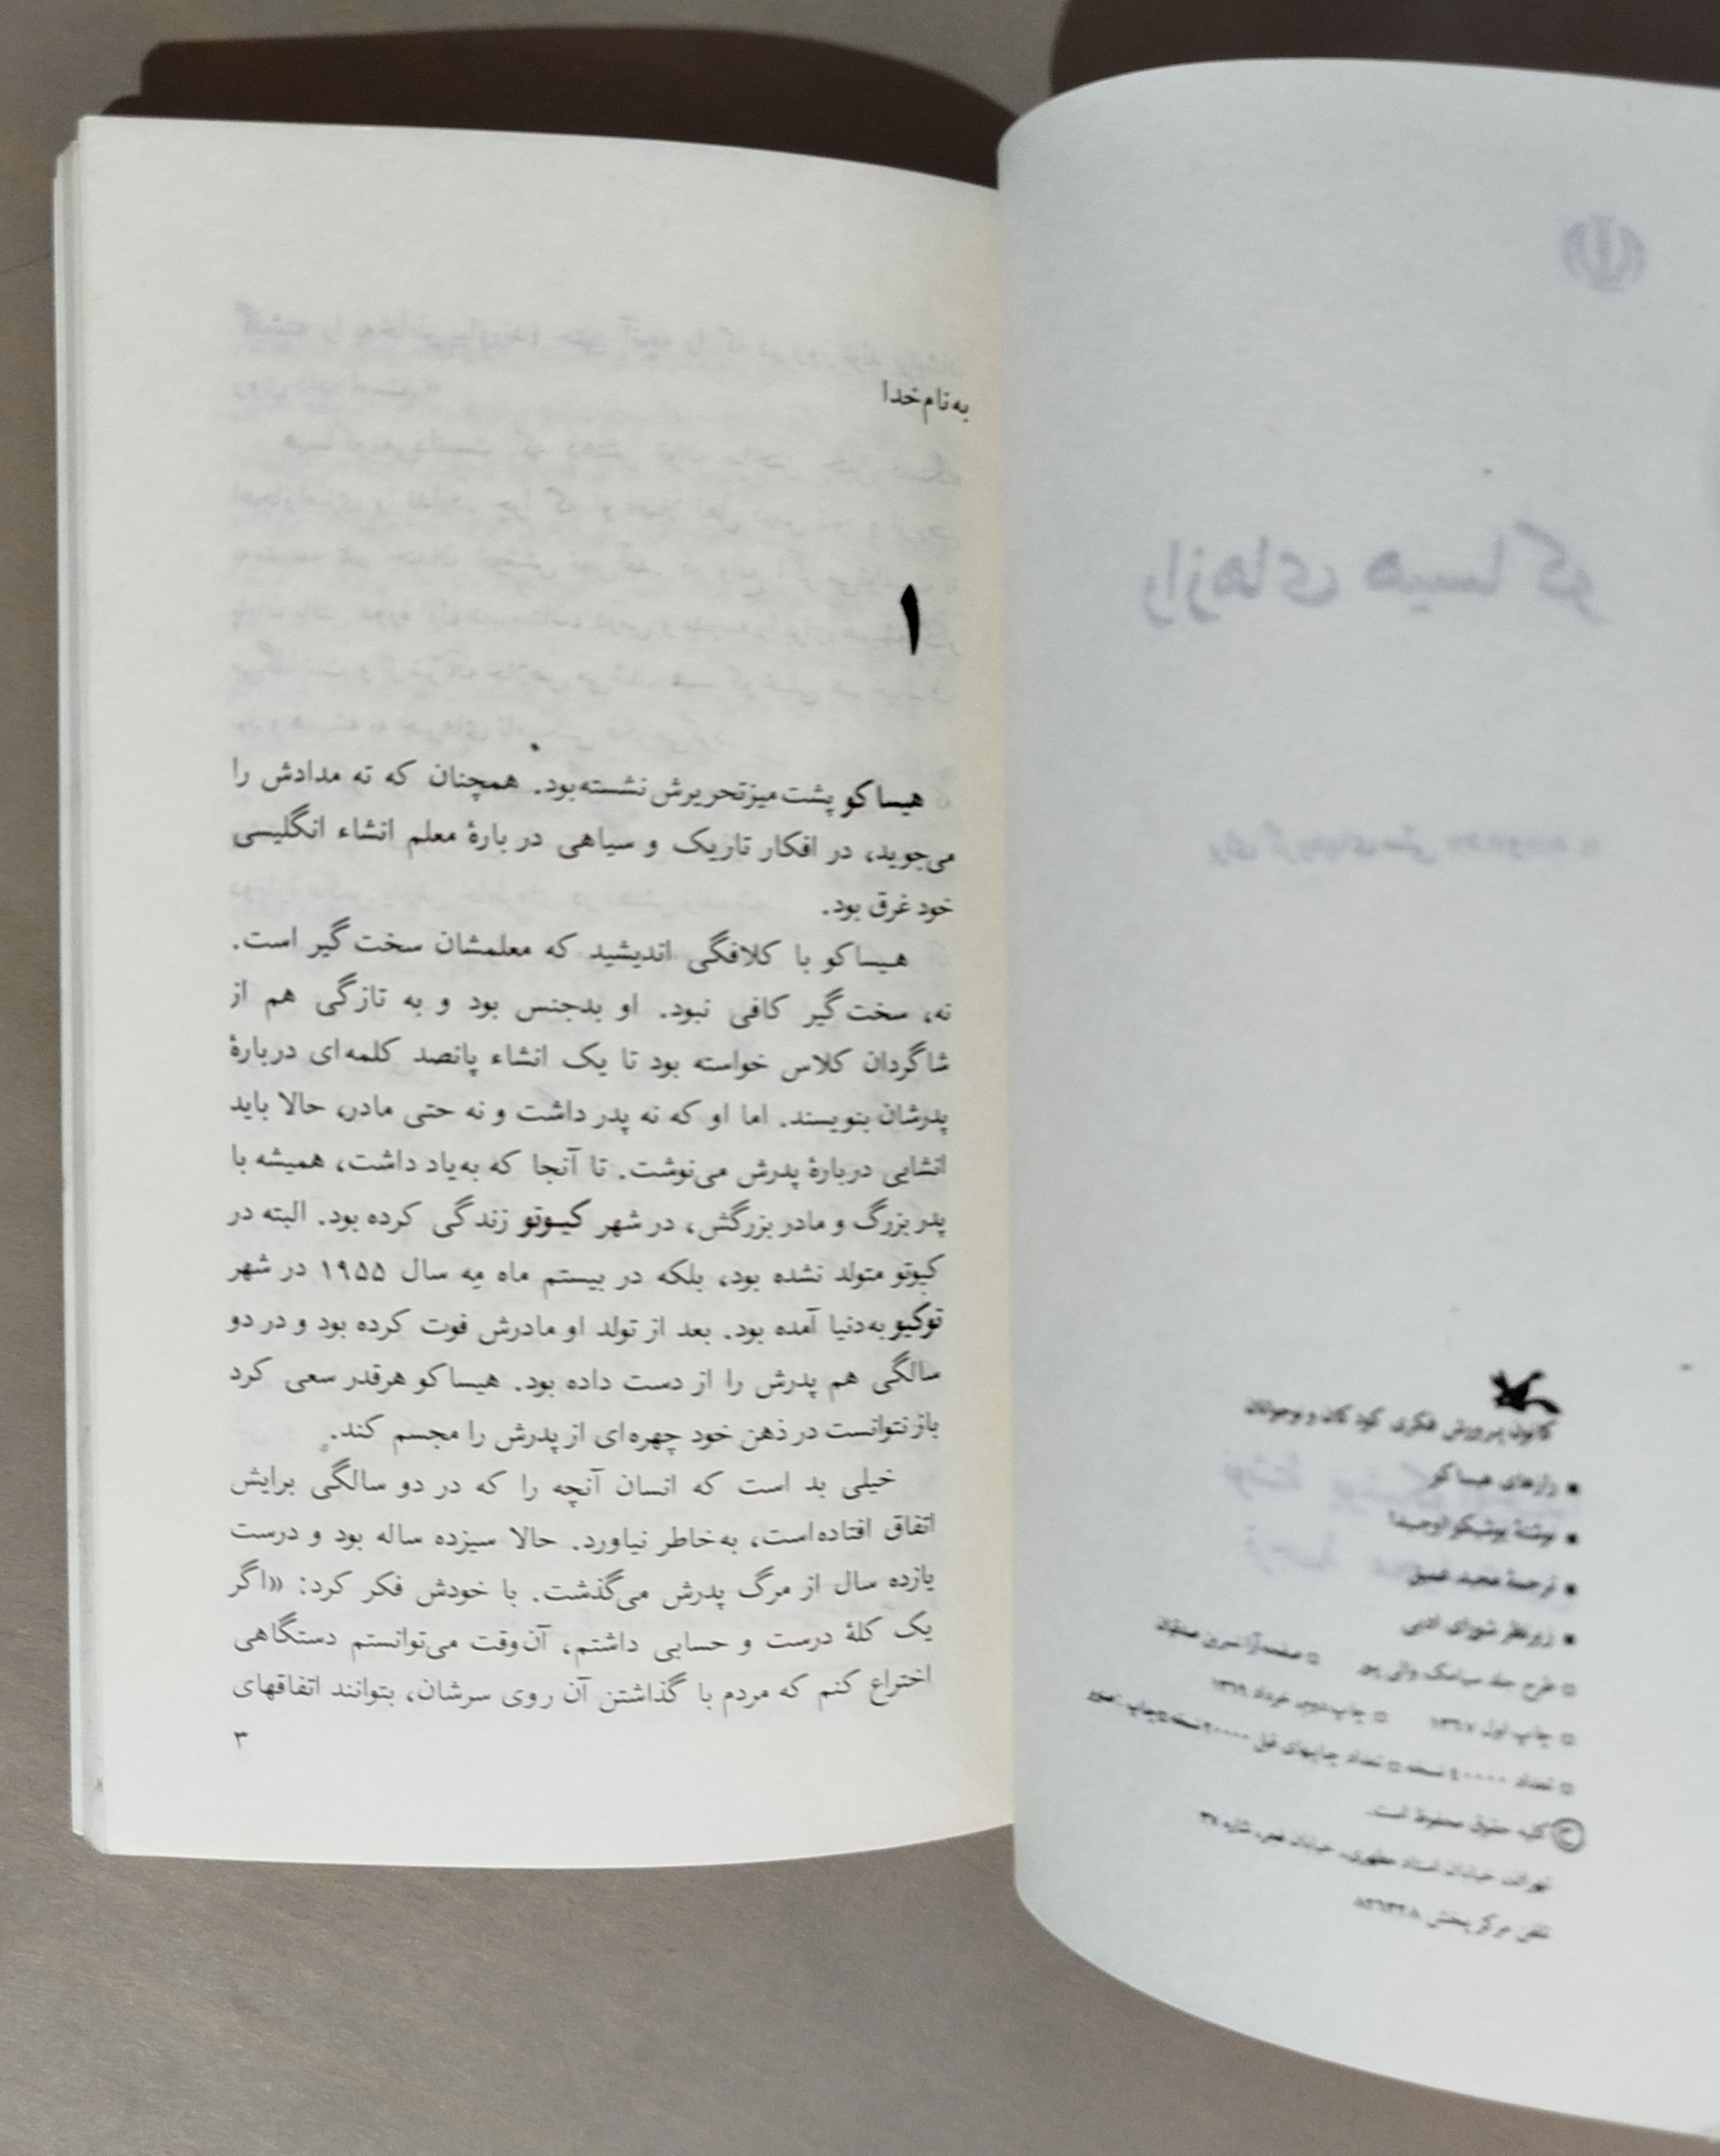 کانون پرورش فکری کودکان و نوجوانان
▪ رازهای هیساکو
▪ نوشتهٔ یوشیکو اوچیدا
▪ ترجمهٔ مجید عمیق
▪ زیرنظر شورای ادبی
▫ طرح جلد سیامک والی پور ▫ صفحه‌آرا نسرین
▫ چاپ اول ۱۳۶۷ ▫ چاپ دوم، خرداد ۱۳۶۹
▫ تعداد ۴۰۰۰۰ نسخه ▫ تعداد چاپهای قبل ۲۰۰۰۰ نسخه ▫ چاپ:
© کلیه حقوق محفوظ است.
تهران، خیابان استاد مطهری، خیابان فجر، شماره ۳۷
تلفن مرکز پخش
به‌نام‌خدا
۱
هیساکو پشت‌میزتحریرش نشسته‌بود. همچنان که ته مدادش را
می‌جوید، در افکار تاریک و سیاهی دربارهٔ معلم انشاء انگلیسی
خود غرق بود.
هیساکو با کلافگی اندیشید که معلمشان سخت‌گیر است.
نه، سخت‌گیر کافی نبود. او بدجنس بود و به تازگی هم از
شاگردان کلاس خواسته بود تا یک انشاء پانصد کلمه‌ای دربارهٔ
پدرشان بنویسند. اما او که نه پدر داشت و نه حتی مادر، حالا باید
انشایی دربارهٔ پدرش می‌نوشت. تا آنجا که به‌یاد داشت، همیشه با
پدربزرگ و مادربزرگش، در شهر کیوتو زندگی کرده بود. البته در
کیوتو متولد نشده بود، بلکه در بیستم ماه مِه سال ۱۹۵۵ در شهر
توکیو به‌دنیا آمده بود. بعد از تولد او مادرش فوت کرده بود و در دو
سالگی هم پدرش را از دست داده بود. هیساکو هرقدر سعی کرد
بازنتوانست در ذهن خود چهره‌ای از پدرش را مجسم کند.
خیلی بد است که انسان آنچه را که در دو سالگی برایش
اتفاق افتاده‌است، به‌خاطر نیاورد. حالا سیزده ساله بود و درست
یازده سال از مرگ پدرش می‌گذشت. با خودش فکر کرد: «اگر
یک کلهٔ درست و حسابی داشتم، آن‌وقت می‌توانستم دستگاهی
اختراع کنم که مردم با گذاشتن آن روی سرشان، بتوانند اتفاقهای
۳